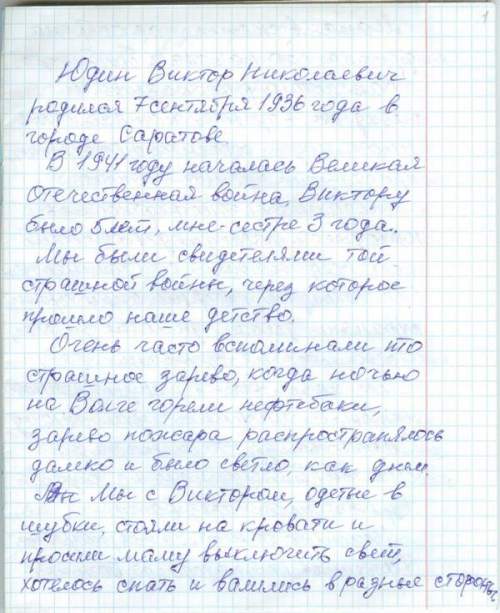 1
Юдин Виктор Николаевич
родился 7 сентября 1936 года в
городе Саратове.
В 1941 году началась Великая
Отечественная война, Виктору
было 5 лет, мне-сестре 3 года.
Мы были свидетелями той
страшной войны, через которое
прошло наше детство.
Очень часто вспоминали это
страшное зарево, когда ночью
на Волге горели нефтебаки,
зарево пожара распространялось
далеко и было светло, как днём.
Мы с Виктором, одетые в
шубки, стояли на кровати и
просили маму выключить свет,
хотелось спать и валились в разные стороны